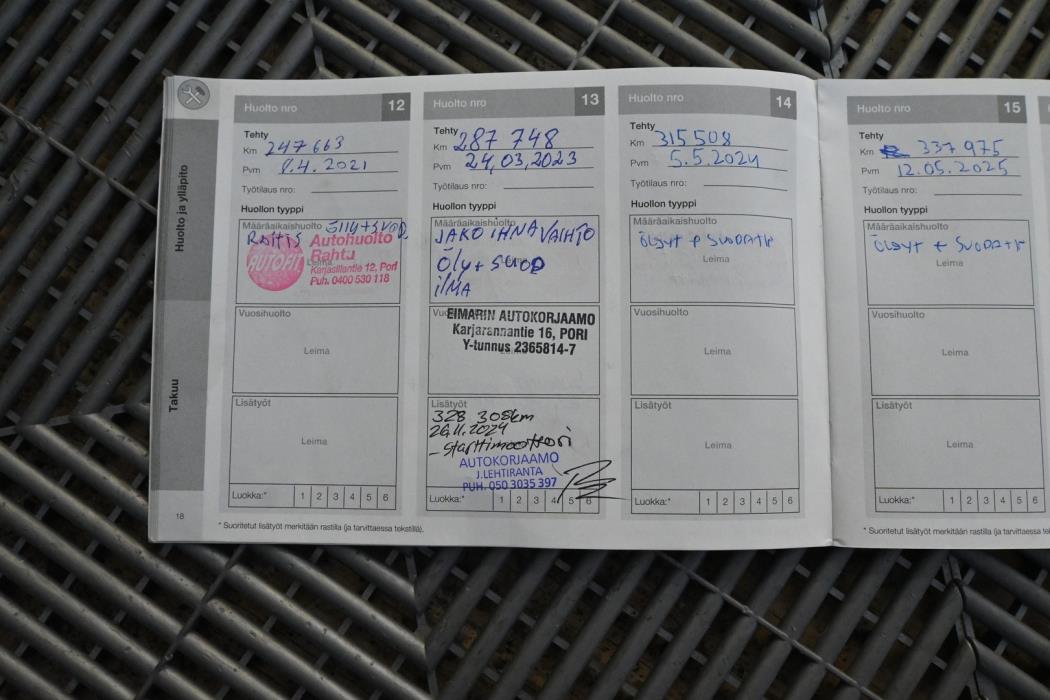 Huolto ja ylläpito
Takuu
18
Huolto nro 12
Tehty
Km 247 663
Pvm 8.4.2021
Työtilaus nro:
Huollon tyyppi
Määräaikaishuolto öljy+suod.
AUTOFIT
Autohuolto
Rahtu
Karjasillantie 12, Pori
Puh. 0400 530 118
Leima
Vuosihuolto
Leima
Lisätyöt
Leima
Luokka:* 1 2 3 4 5 6
Huolto nro 13
Tehty
Km 287 748
Pvm 24,03,2023
Työtilaus nro:
Huollon tyyppi
Määräaikaishuolto
JAKOIHNAVAIHTO
Öljy + SUOD
iLMA
Leima
EIMARIN AUTOKORJAAMO
Karjarannantie 16, PORI
Y-tunnus 2365814-7
Lisätyöt
328 308km
26.11.2024
- Starttimoottori
AUTOKORJAAMO
J.LEHTIRANTA
PUH. 050 3035 397
Luokka:* 1 2 3 4 5 6
* Suoritetut lisätyöt merkitään rastilla (ja tarvittaessa tekstillä).
Huolto nro 14
Tehty
Km 315 508
Pvm 5.5.2024
Työtilaus nro:
Huollon tyyppi
Määräaikaishuolto
ÖLJYT + SUODATIN
Leima
Vuosihuolto
Leima
Lisätyöt
Leima
Luokka:* 1 2 3 4 5 6
Huolto nro 15
Tehty
Km 337 975
Pvm 12.05.2025
Työtilaus nro:
Huollon tyyppi
Määräaikaishuolto
ÖLJYT + SUODATIN
Leima
Vuosihuolto
Leima
Lisätyöt
Leima
Luokka:* 1 2 3 4 5 6
* Suoritetut lisätyöt merkitään rastilla (ja tarvittaessa